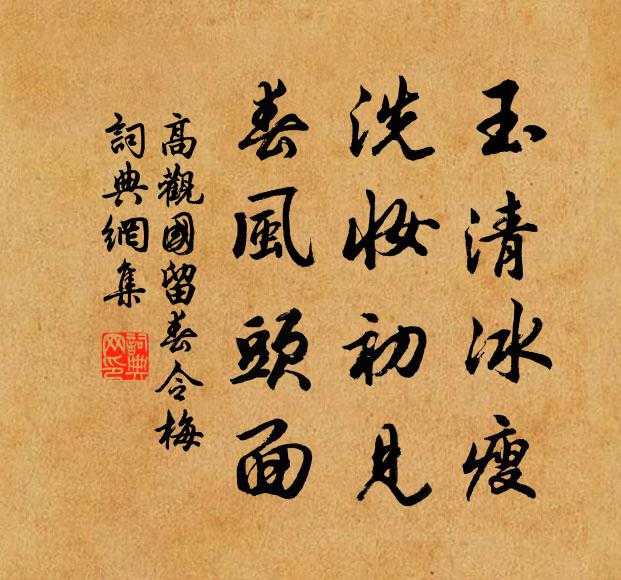 玉清冰瘦
洗妝初見
春風頭面
高觀國留春令梅
詞典網集
詞典網印